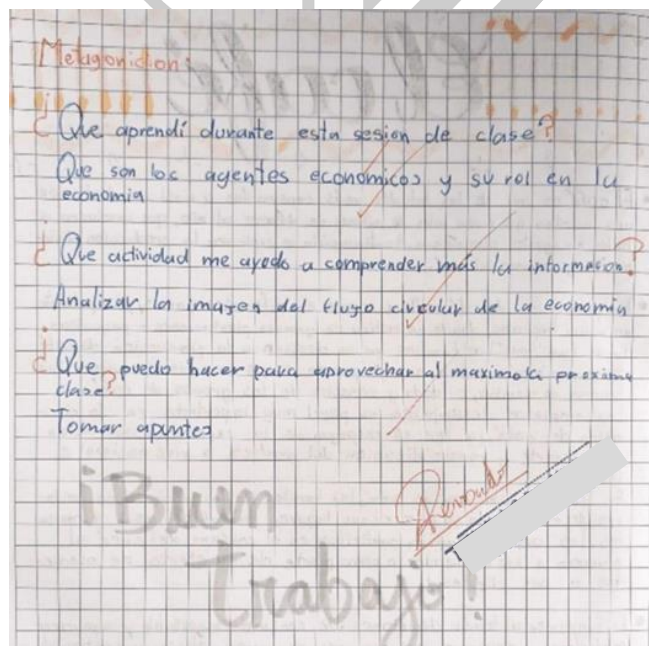 Metagonidion:
¿Que aprendí durante esta sesion de clase?
Que son los agentes economicos y su rol en la
economia
¿Que actividad me ayedo a comprender más la informacion?
Analizar la imagen del flujo circular de la economia
¿Que puedo hacer para aprovechar al maximo la proxima
clase?
Tomar apuntes
¡Buen
Trabajo!